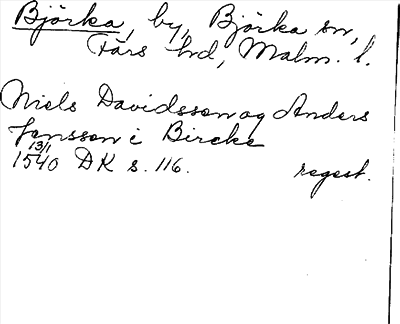 Björka, by, Björka sn,
Färs hd, Malm. l.
Niels Davidsson og Anders
Jensson i Bircke
13/1
1540 DK s. 116.
regest.